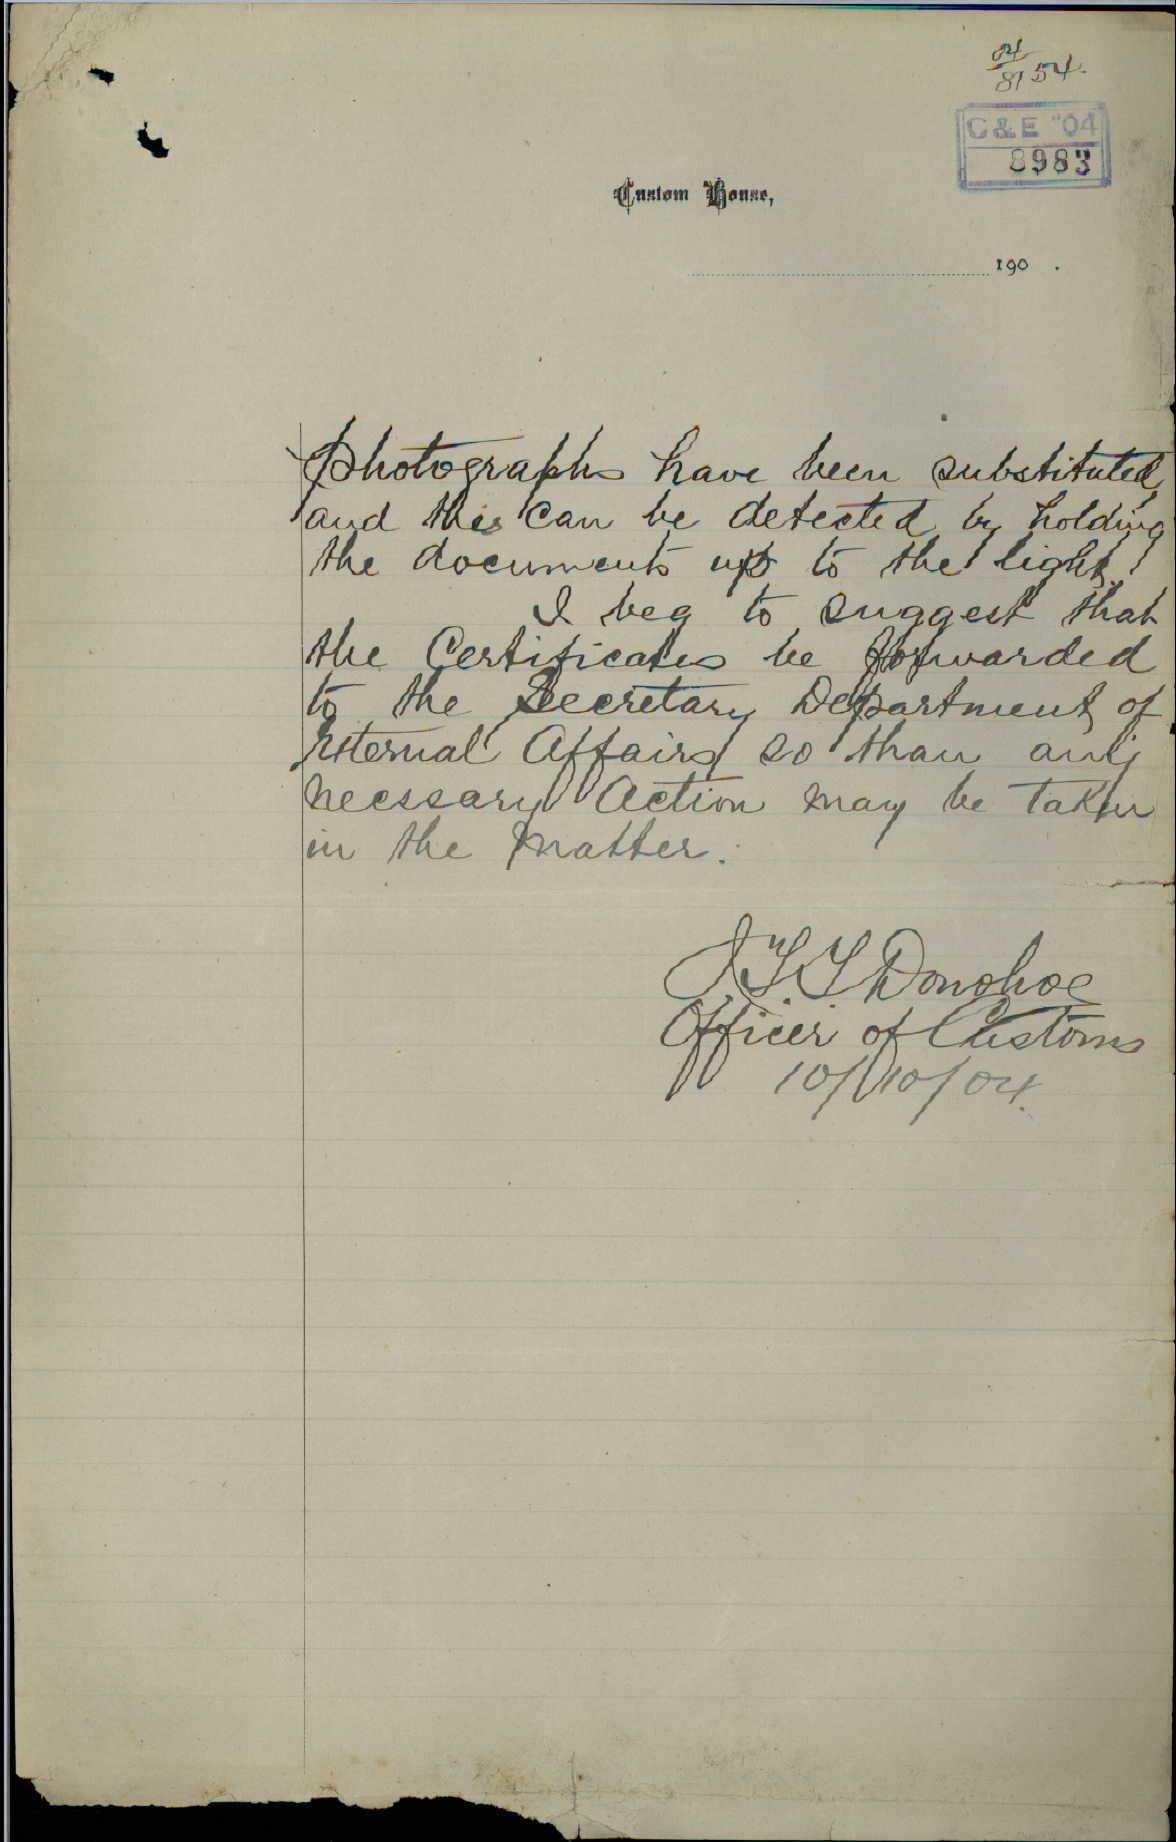 04
81 54.
C & E "04
8983
Custom House,
190 .
photographs have been substituted
and this can be detected by holding
the documents up to the light.
I beg to suggest that
the Certificates be forwarded
to the Secretary Department of
External Affairs so than any
necessary Action may be taken
in the matter.
Donohoe
Officer of Customs
10/10/04.